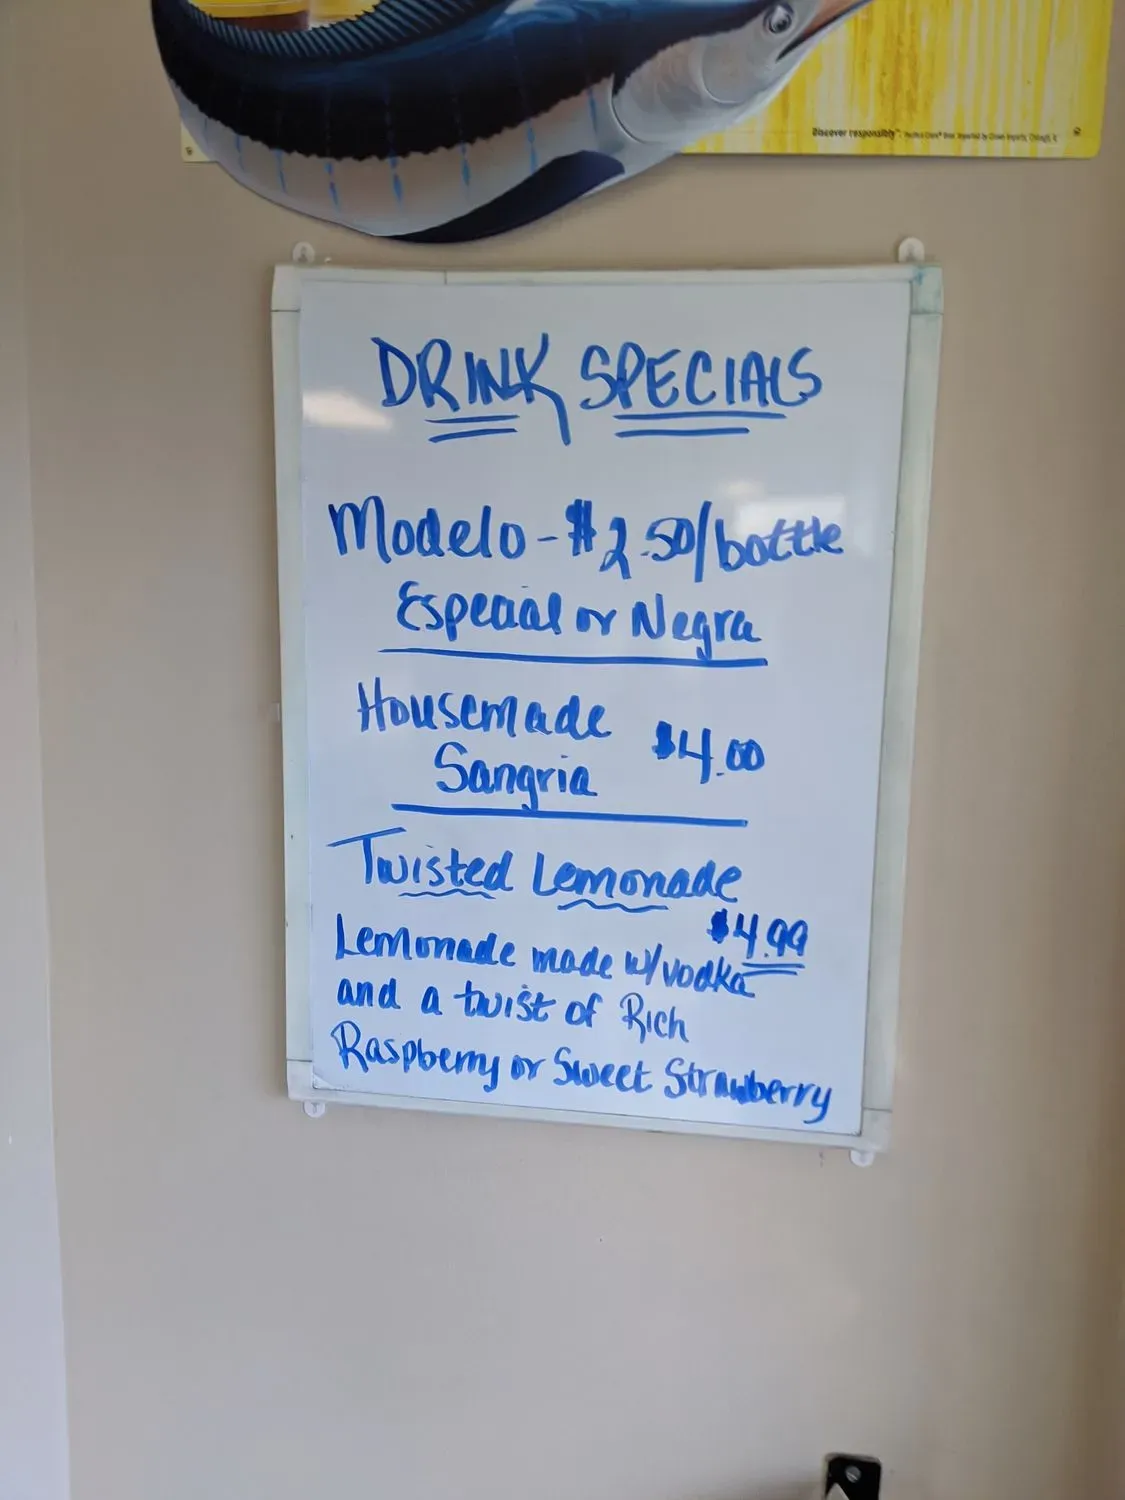 Discover responsibly™.
DRINK SPECIALS
Modelo - $2.50/bottle
Especial or Negra
Housemade
Sangria $4.00
Twisted Lemonade
$4.99
Lemonade made w/vodka
and a twist of Rich
Raspberry or Sweet Strawberry